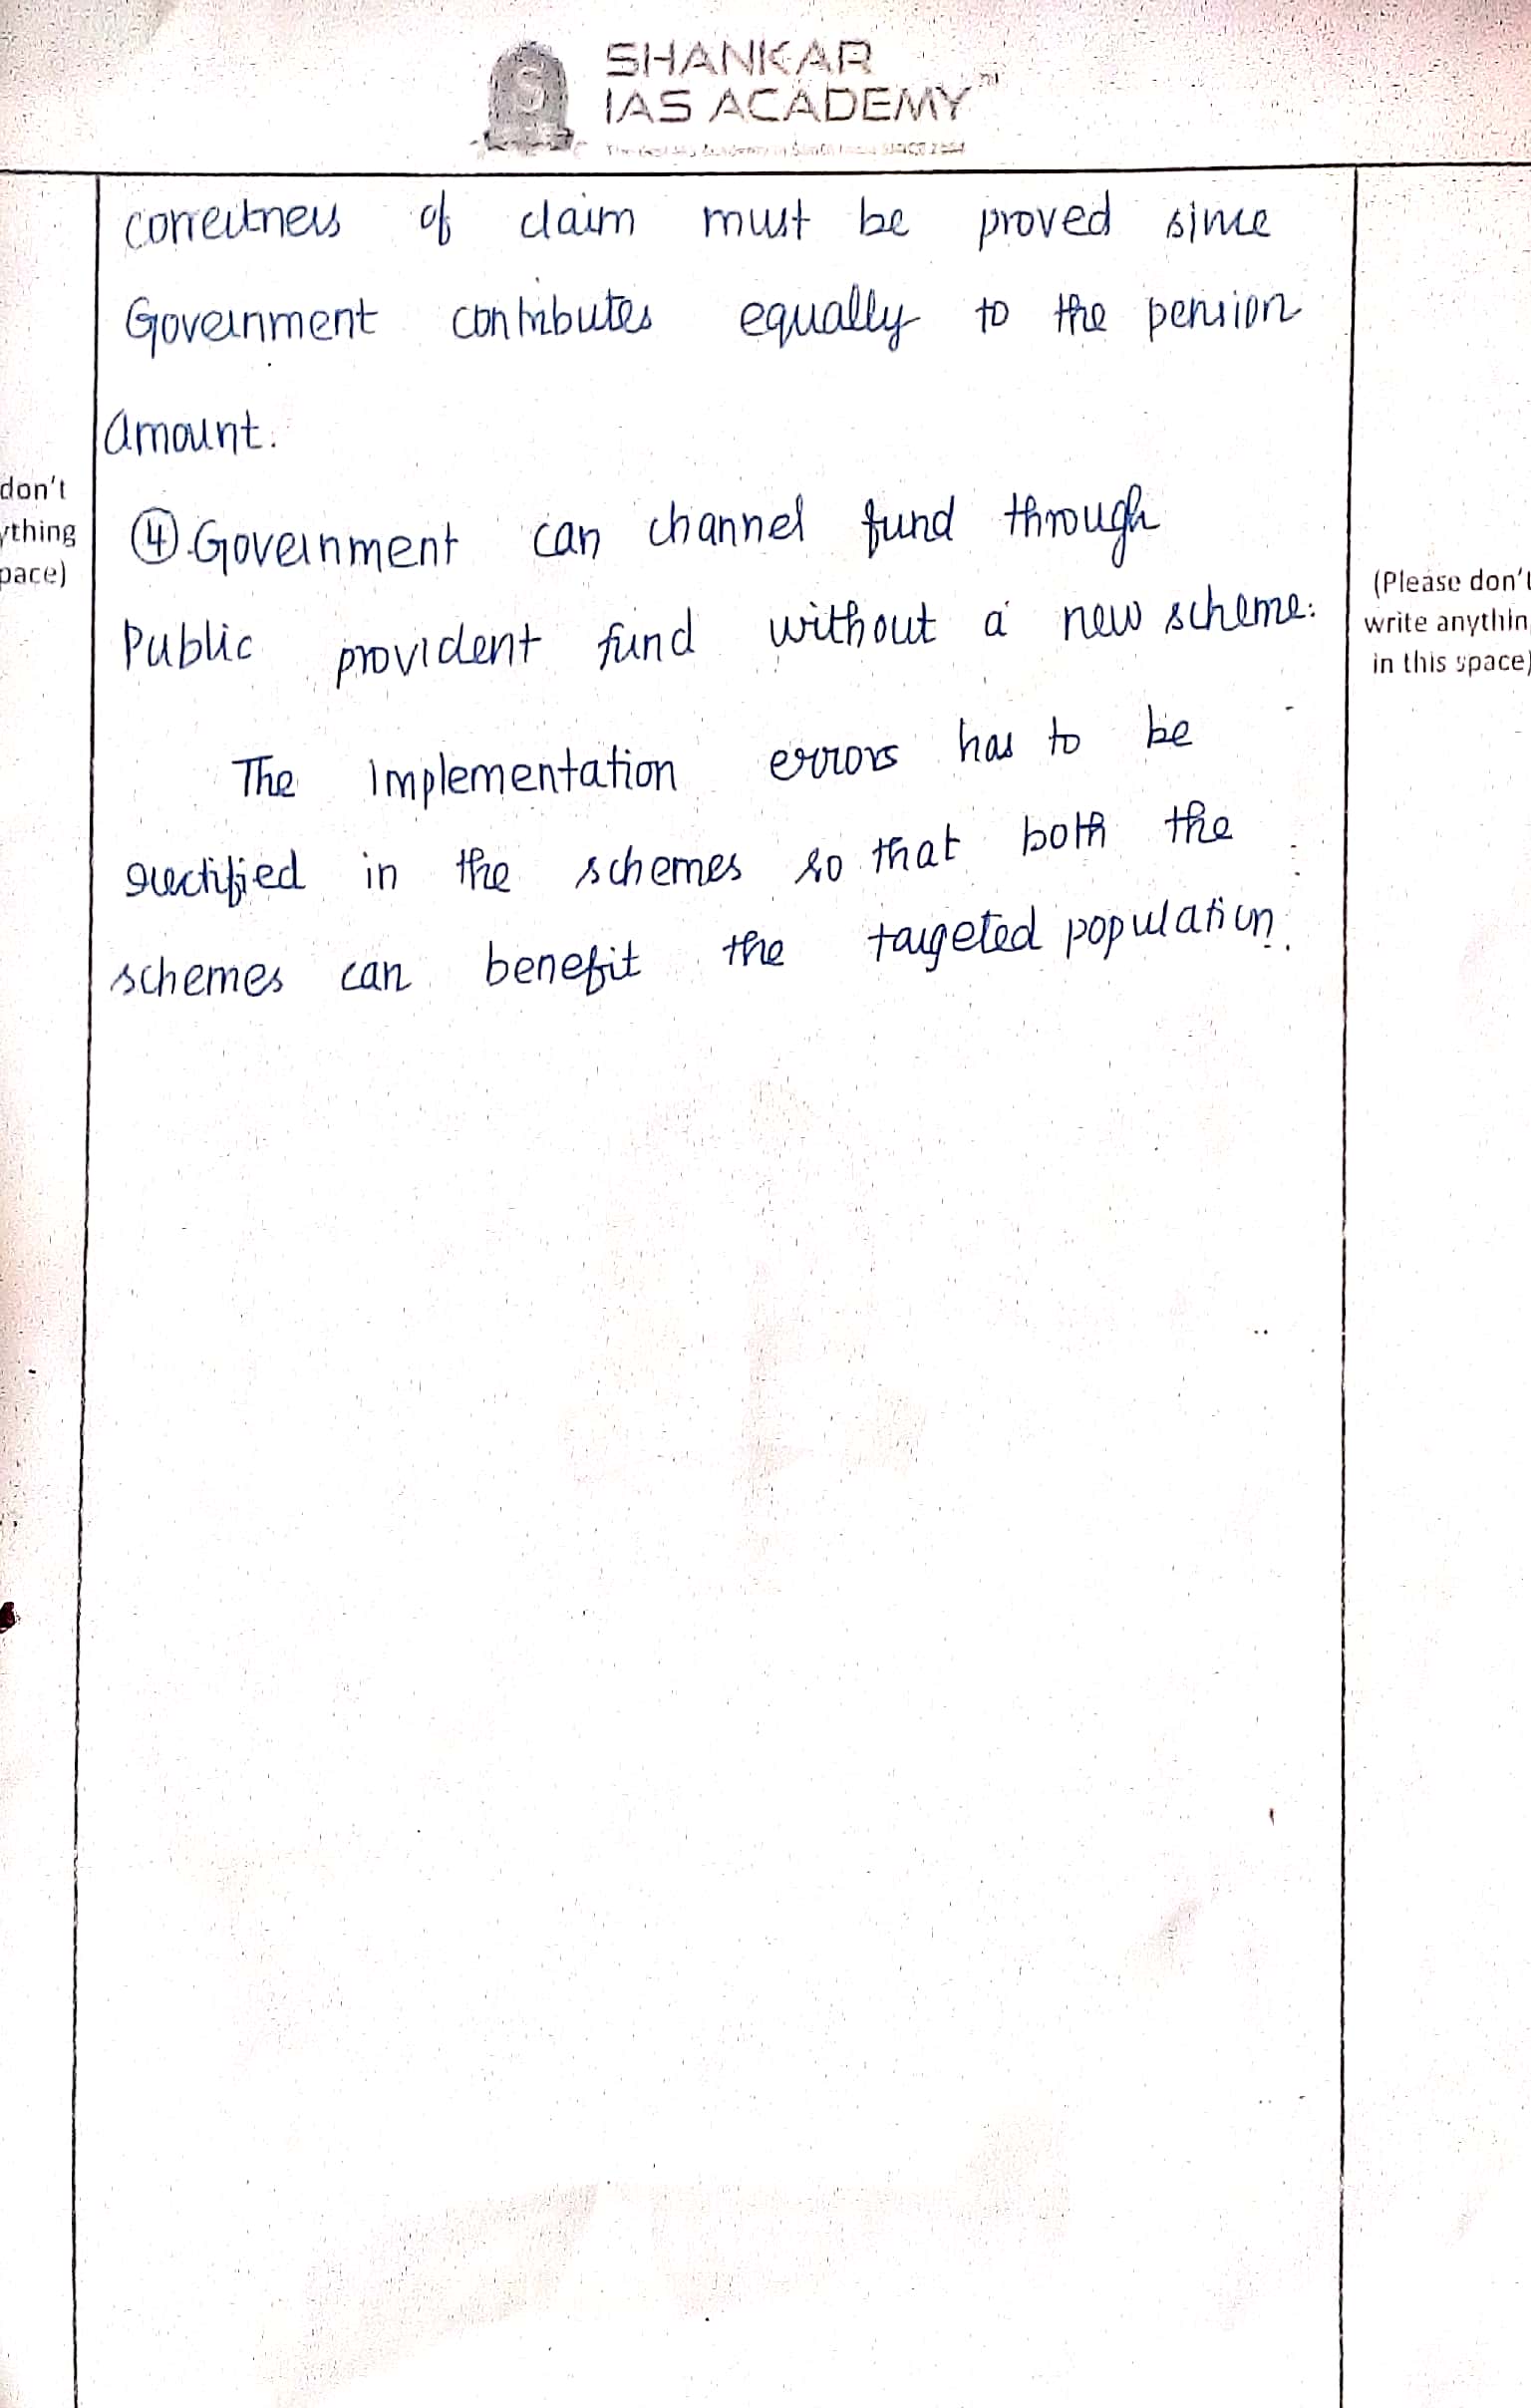 SHANKAR
IAS ACADEMY
correctness of claim must be proved since
Government contributes equally to the pension
amount.
don't
ything
pace)
④ Government can channel fund through
Public provident fund without a new scheme.
(Please don't
write anythin
in this space)
The Implementation errors has to be
rectified in the schemes so that both the
schemes can benefit the targeted population.